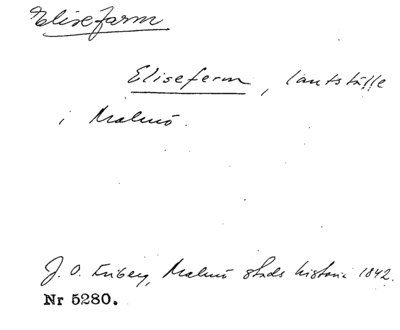 Elisefarm
Eliseferm, lantställe
i Malmö.
J. O. Friberg, Malmö stads historia 1842.
Nr 5280.